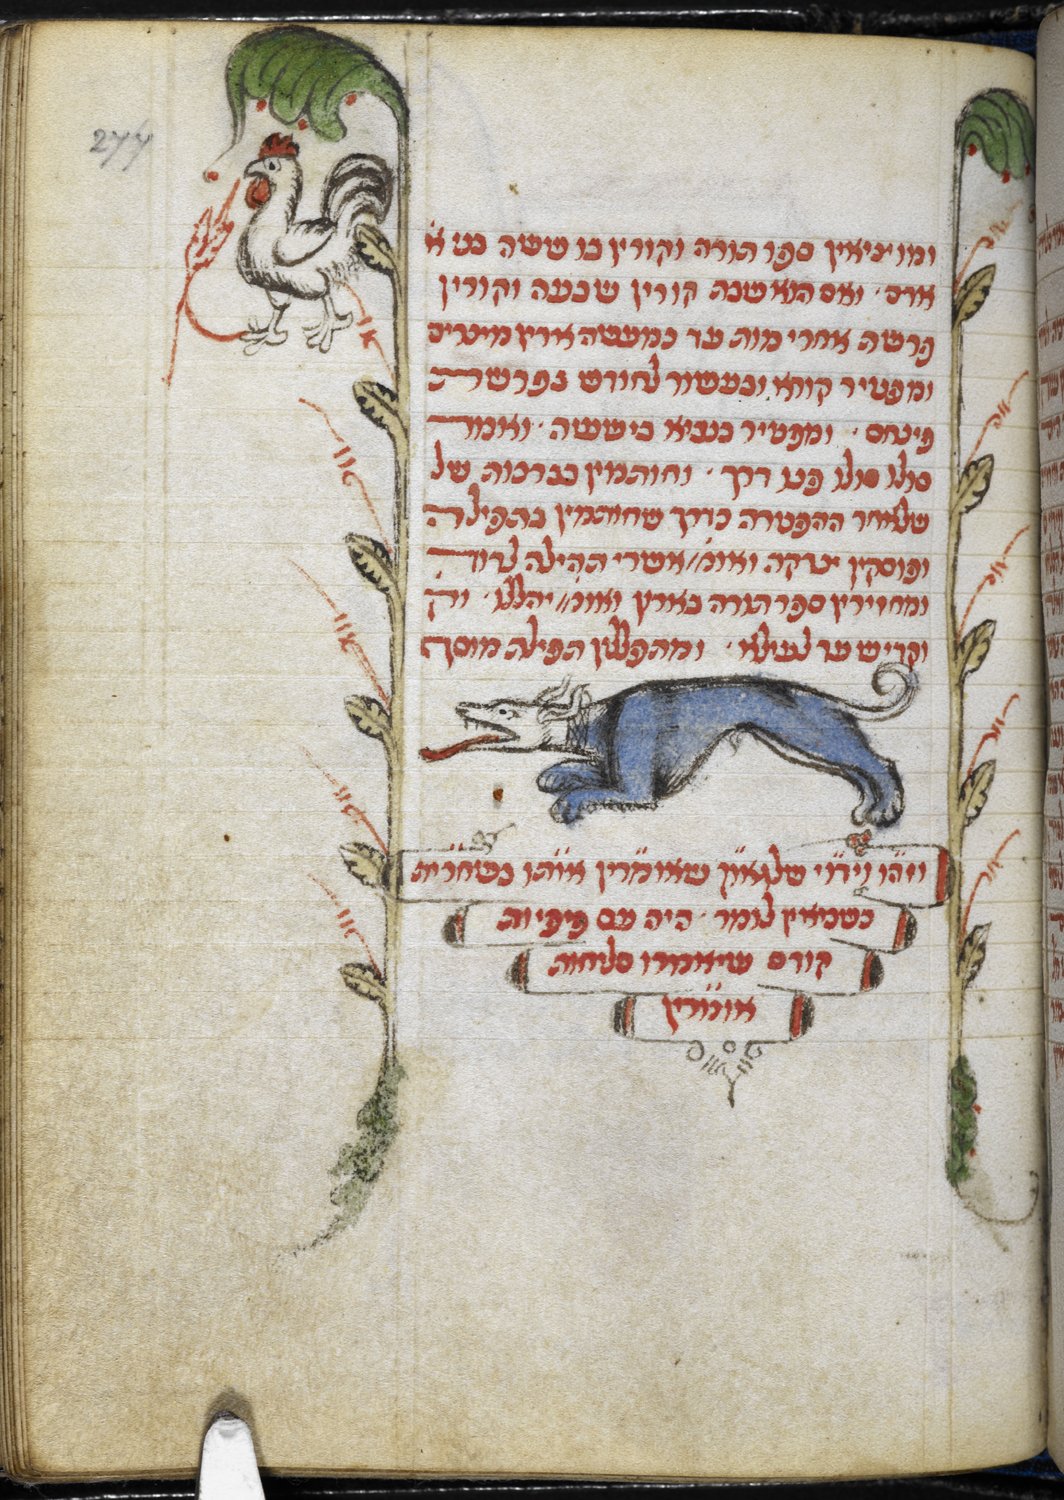 277
ומוציאין ספר תורה וקורין בו ששה בני א
אדם ואם הוא שבת קורין שבעה וקורין
פרשה אחרי מות עד כמעשה ארץ מיצרים
ומפטיר קורא ובעשור לחודש בפרשת
פינחס ומפטיר בנביא בישעיה ואומר
סולו סולו פנו דרך וחותמין בברכות של
שלאחר ההפטרה כדרך שחותמין בתפילה
ופוסקין צדקה ואומ׳ אשרי תהילה לדוד
ומחזירין ספר תורה בארון ואומ׳ יהללו
וקדיש עד לעילא ומתפללין תפילת מוסף
וזהו שאומרין אותו בשחרית
כשבאין לומר היה עם פיפיות
קודם שיאמרו סליחות
אומרין